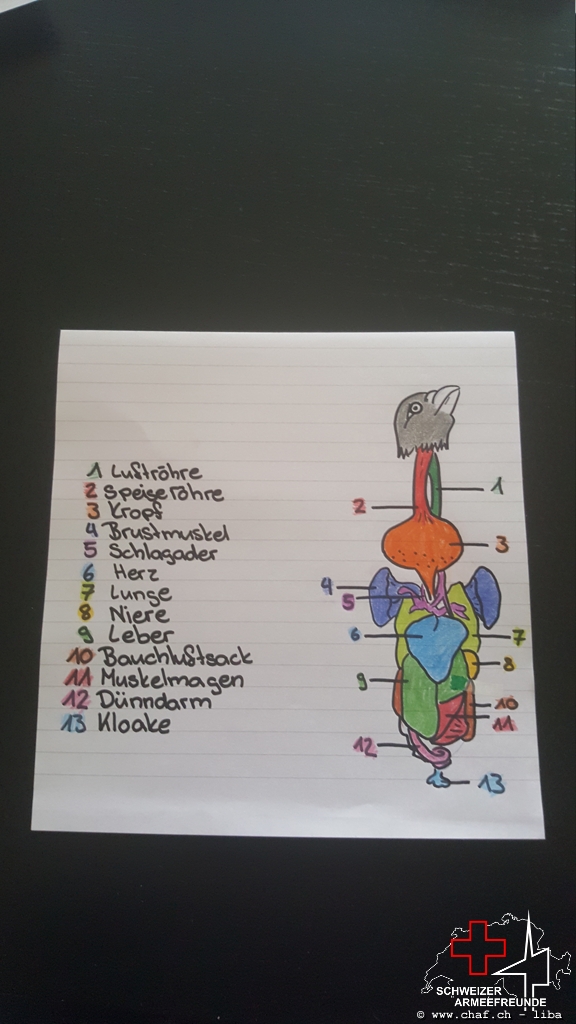 1 Luftröhre
2 Speiseröhre
3 Kropf
4 Brustmuskel
5 Schlagader
6 Herz
7 Lunge
8 Niere
9 Leber
10 Bauchluftsack
11 Muskelmagen
12 Dünndarm
13 Kloake
1
2
3
4
5
6
7
8
9
10
11
12
13
SCHWEIZER
ARMEEFREUNDE
© www.chaf.ch - liba